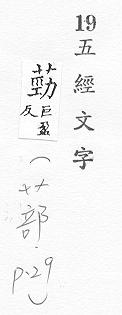 19
五經文字
葝
巨盈
反
(艹部.
p.29)